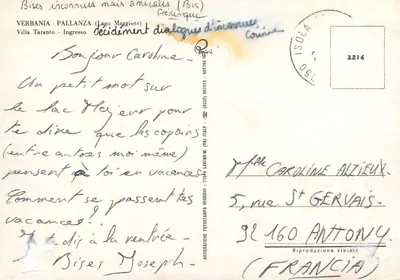 Bises inconnues mais amicales (Bis)
Frédérique
VERBANIA - PALLANZA (Lago Maggiore)
Villa Taranto - Ingresso
Décidément dialogues d'inconnues
Corinne
Bonjour Caroline -
Un petit mot sur
le lac Majeur pour
te dire que les copains
(entre autres moi même)
pensent à toi en vacances
Comment se passent tes
vacances?
Je te dis à la rentrée.
Bises Joseph -
ISOLA
2216
Mlle CAROLINE ALZIEUX.
5, rue St GERVAIS.
92 160 ANTONY
Riproduzione vietata
(FRANCIA)